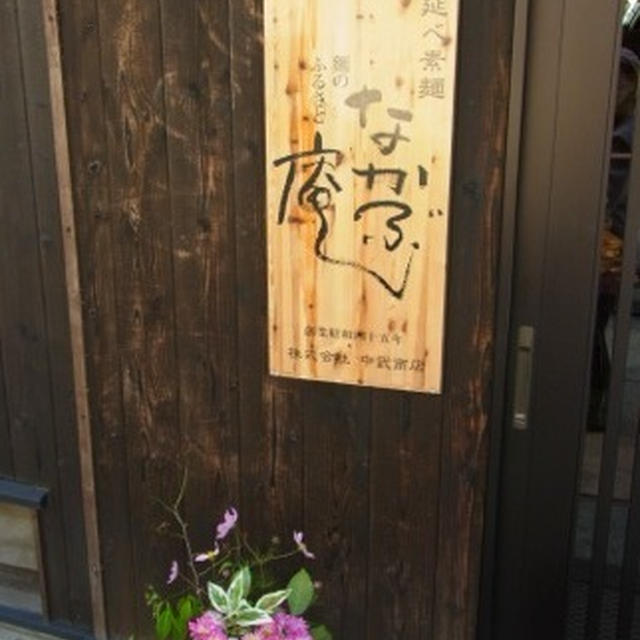 延べ素麺
麺の
ふるさと
なかぶ
庵
創業昭和十五年
株式会社 中武商店